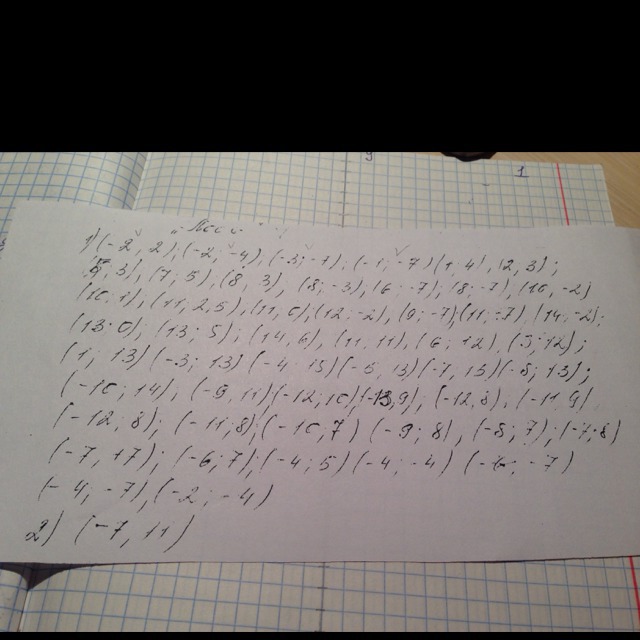 1
1) (-2, 2); (-2; -4), (-3; -1); (-1; -7) (1, 4), (2, 3);
(5, 3), (7, 5), (8, 3), (8; -3), (6; -7), (8; -7), (10, -2)
(10, 1), (11, 2,5), (11, 0), (12; -2), (9; -7), (11; -7), (14, -2);
(13; 0); (13; 5); (14, 6), (11, 11), (6; 12), (3; 12);
(1; 13) (-3; 13) (-4 15) (-5, 13) (-7, 15) (-8; 13);
(-10; 14); (-9, 11) (-12, 10), (-13, 9); (-12, 8); (-11 9)
(-12; 8); (-11; 8), (-10, 7) (-9; 8), (-8; 7); (-7; 8)
(-7, 17); (-6; 7), (-4; 5) (-4; -4) (-6; -7)
(-4; -7), (-2; -4)
2) (-7, 11)